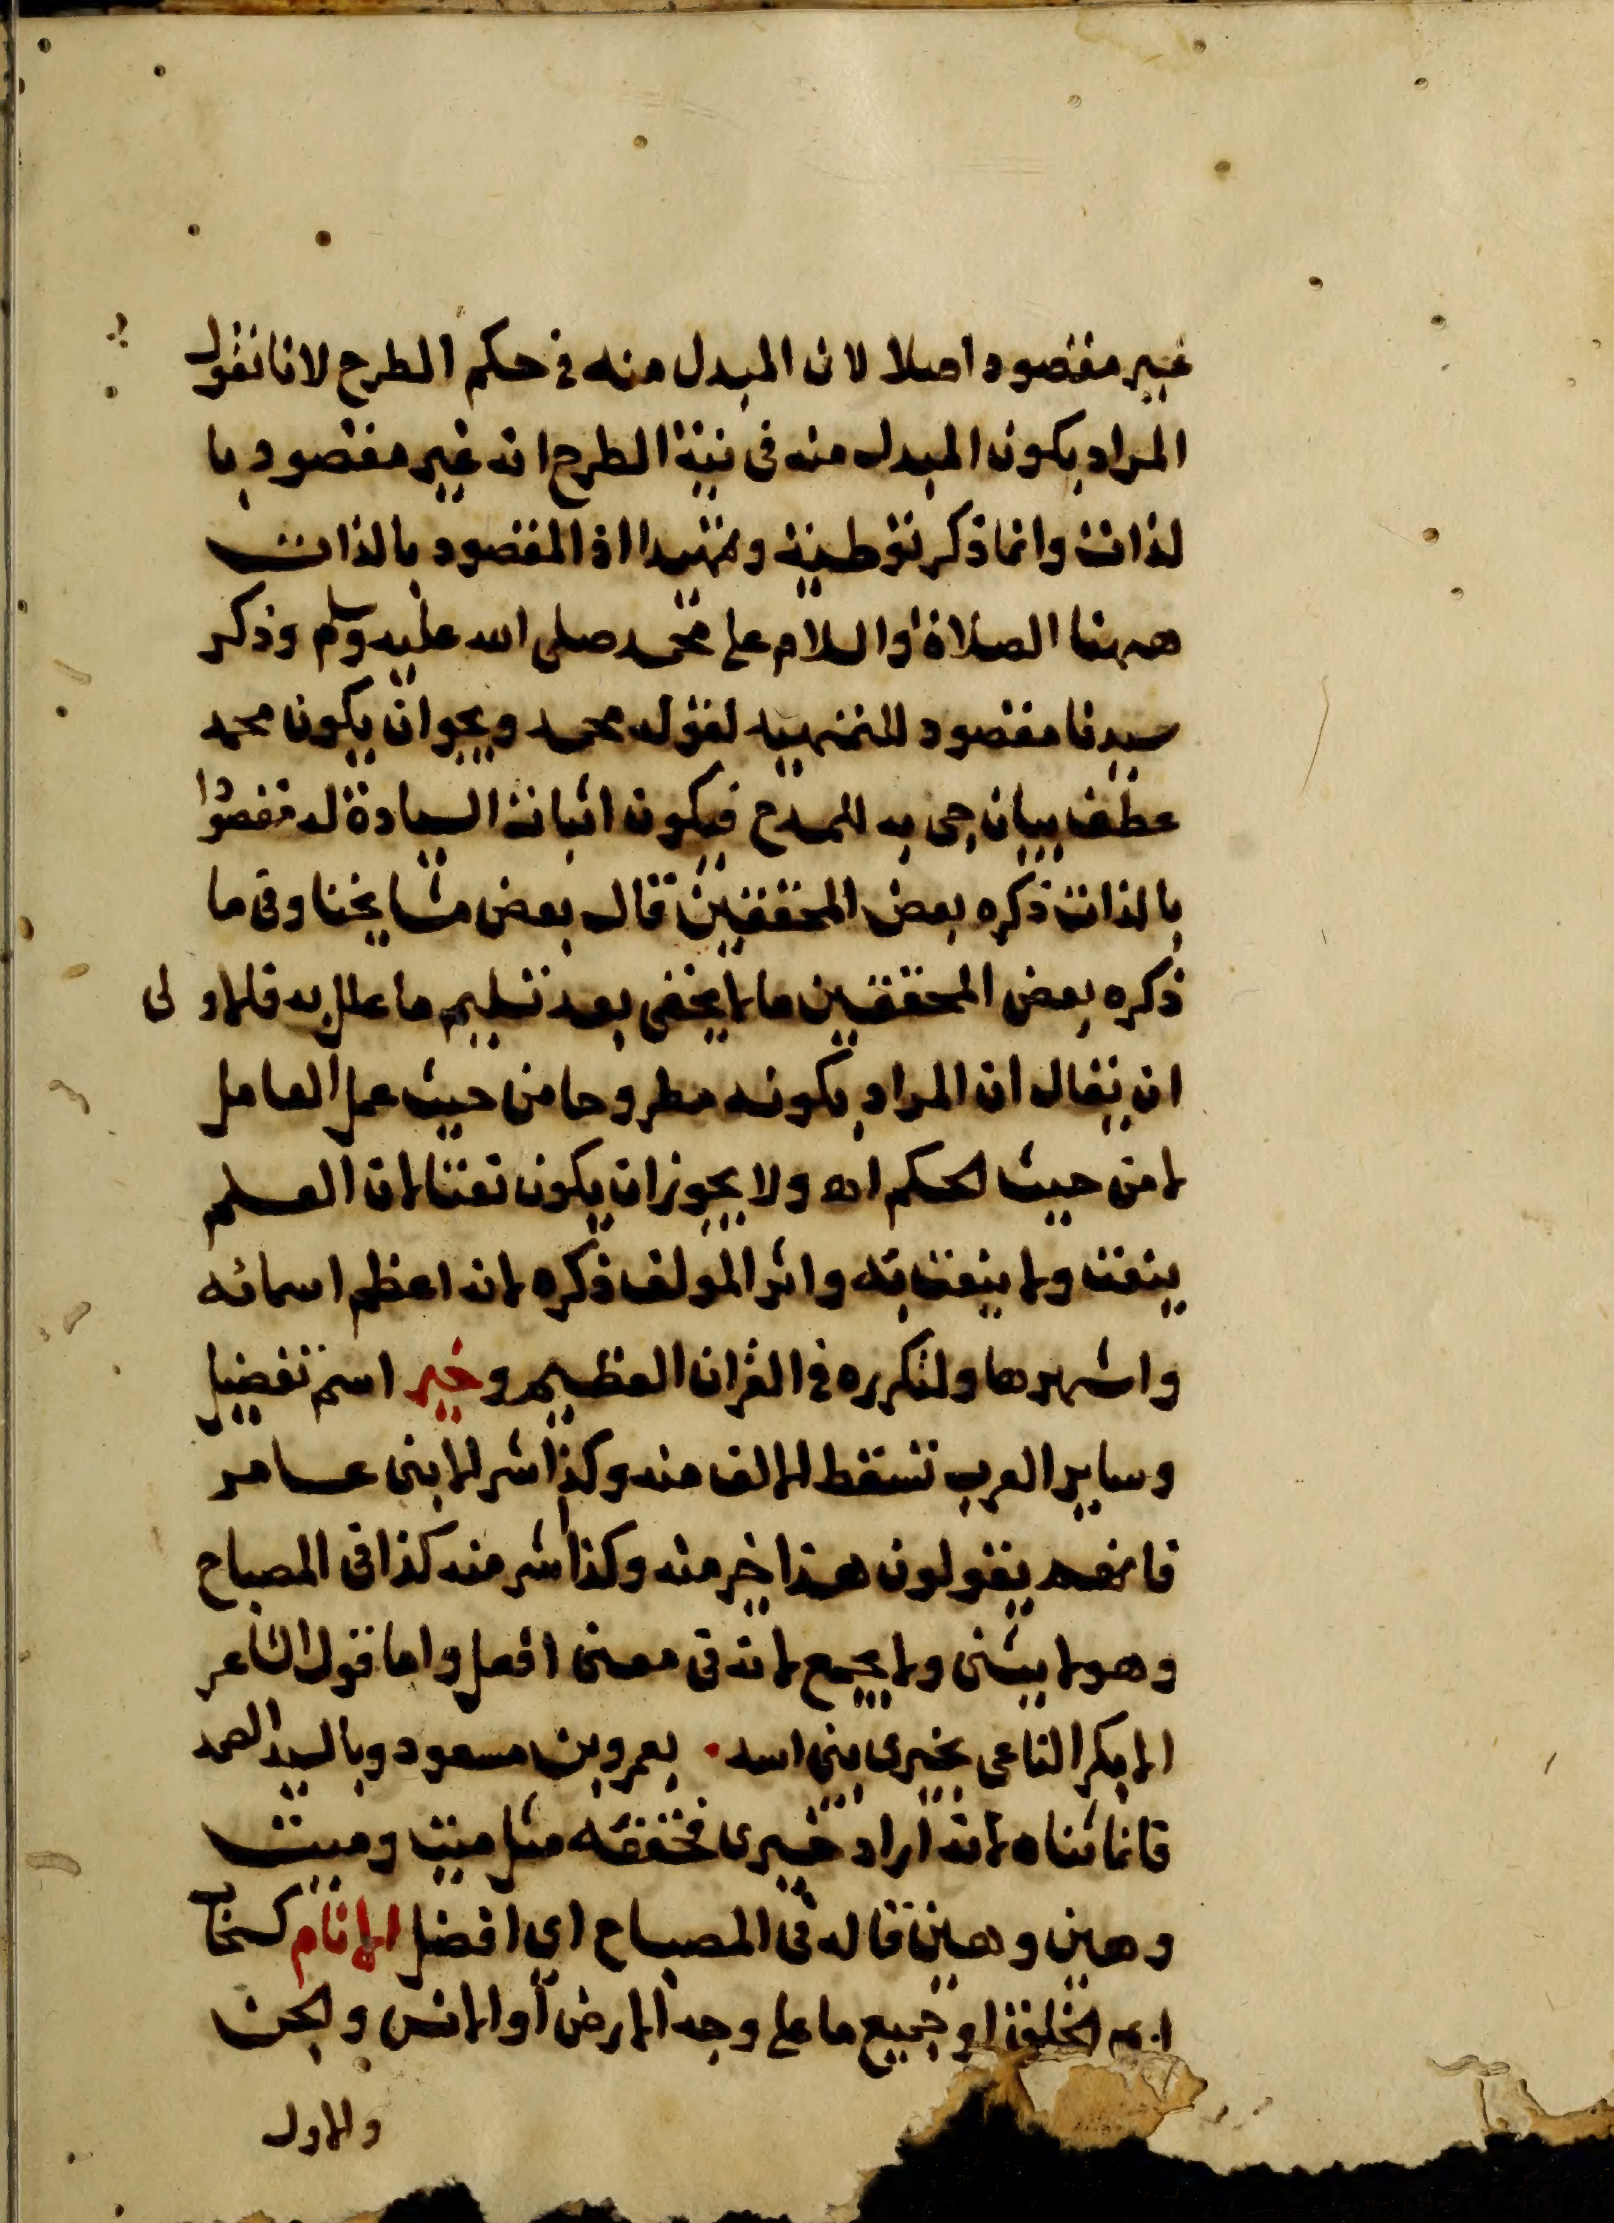 غير مقصود اصلا لان المبدل منه في حكم الطرح لانا نقول
المراد بكون المبدل منه في نية الطرح انه غير مقصود با
لذات وانما ذكر توطية وتمهيدا اذ المقصود بالذات
ههنا الصلاة والسلام على محمد صلى الله عليه وسلم وذكر
سيدنا مقصود للتمهيد لقوله محمد ويجوان يكون محمد
عطف بيان جى به للمدح فيكون اثبات السيادة له مقصودا
بالذات ذكره بعض المحققين قال بعض مشايخنا وفى ما
ذكره بعض المحققين ما لا يخفى بعد تسليم ما علل به فالاولى
ان يقال ان المراد بكونه مطروحا من حيث عمل العامل
لا من حيث الحكم اه ولا يجوز ان يكون نعتا لان العلم
ينعت ولا ينعت به واثر المولف ذكره لانه اعظم اسمائه
واشهرها ولتكرره في القران العظيم وخير اسم تفضيل
وساير العرب تسقط الالف منه وكذا شر الا بنى عامر
فانهم يقولون هذا اخير منه وكذا اشر منه كذا فى المصباح
وهو لا يثنى ولا يجمع لانه فى معنى افعل واما قول الشاعر
الا بكر الناعى بخيرى بنى اسد ٠ بعمرو بن مسعود وبالسيد الصمد
فانما ثناه لانه اراد خيرى فخففه مثل ميت وميت
وهين وهين قاله فى المصباح اي افضل الانام كسحاب
الخلق او جميع ما على وجه الارض أو الانس والجن
والاول